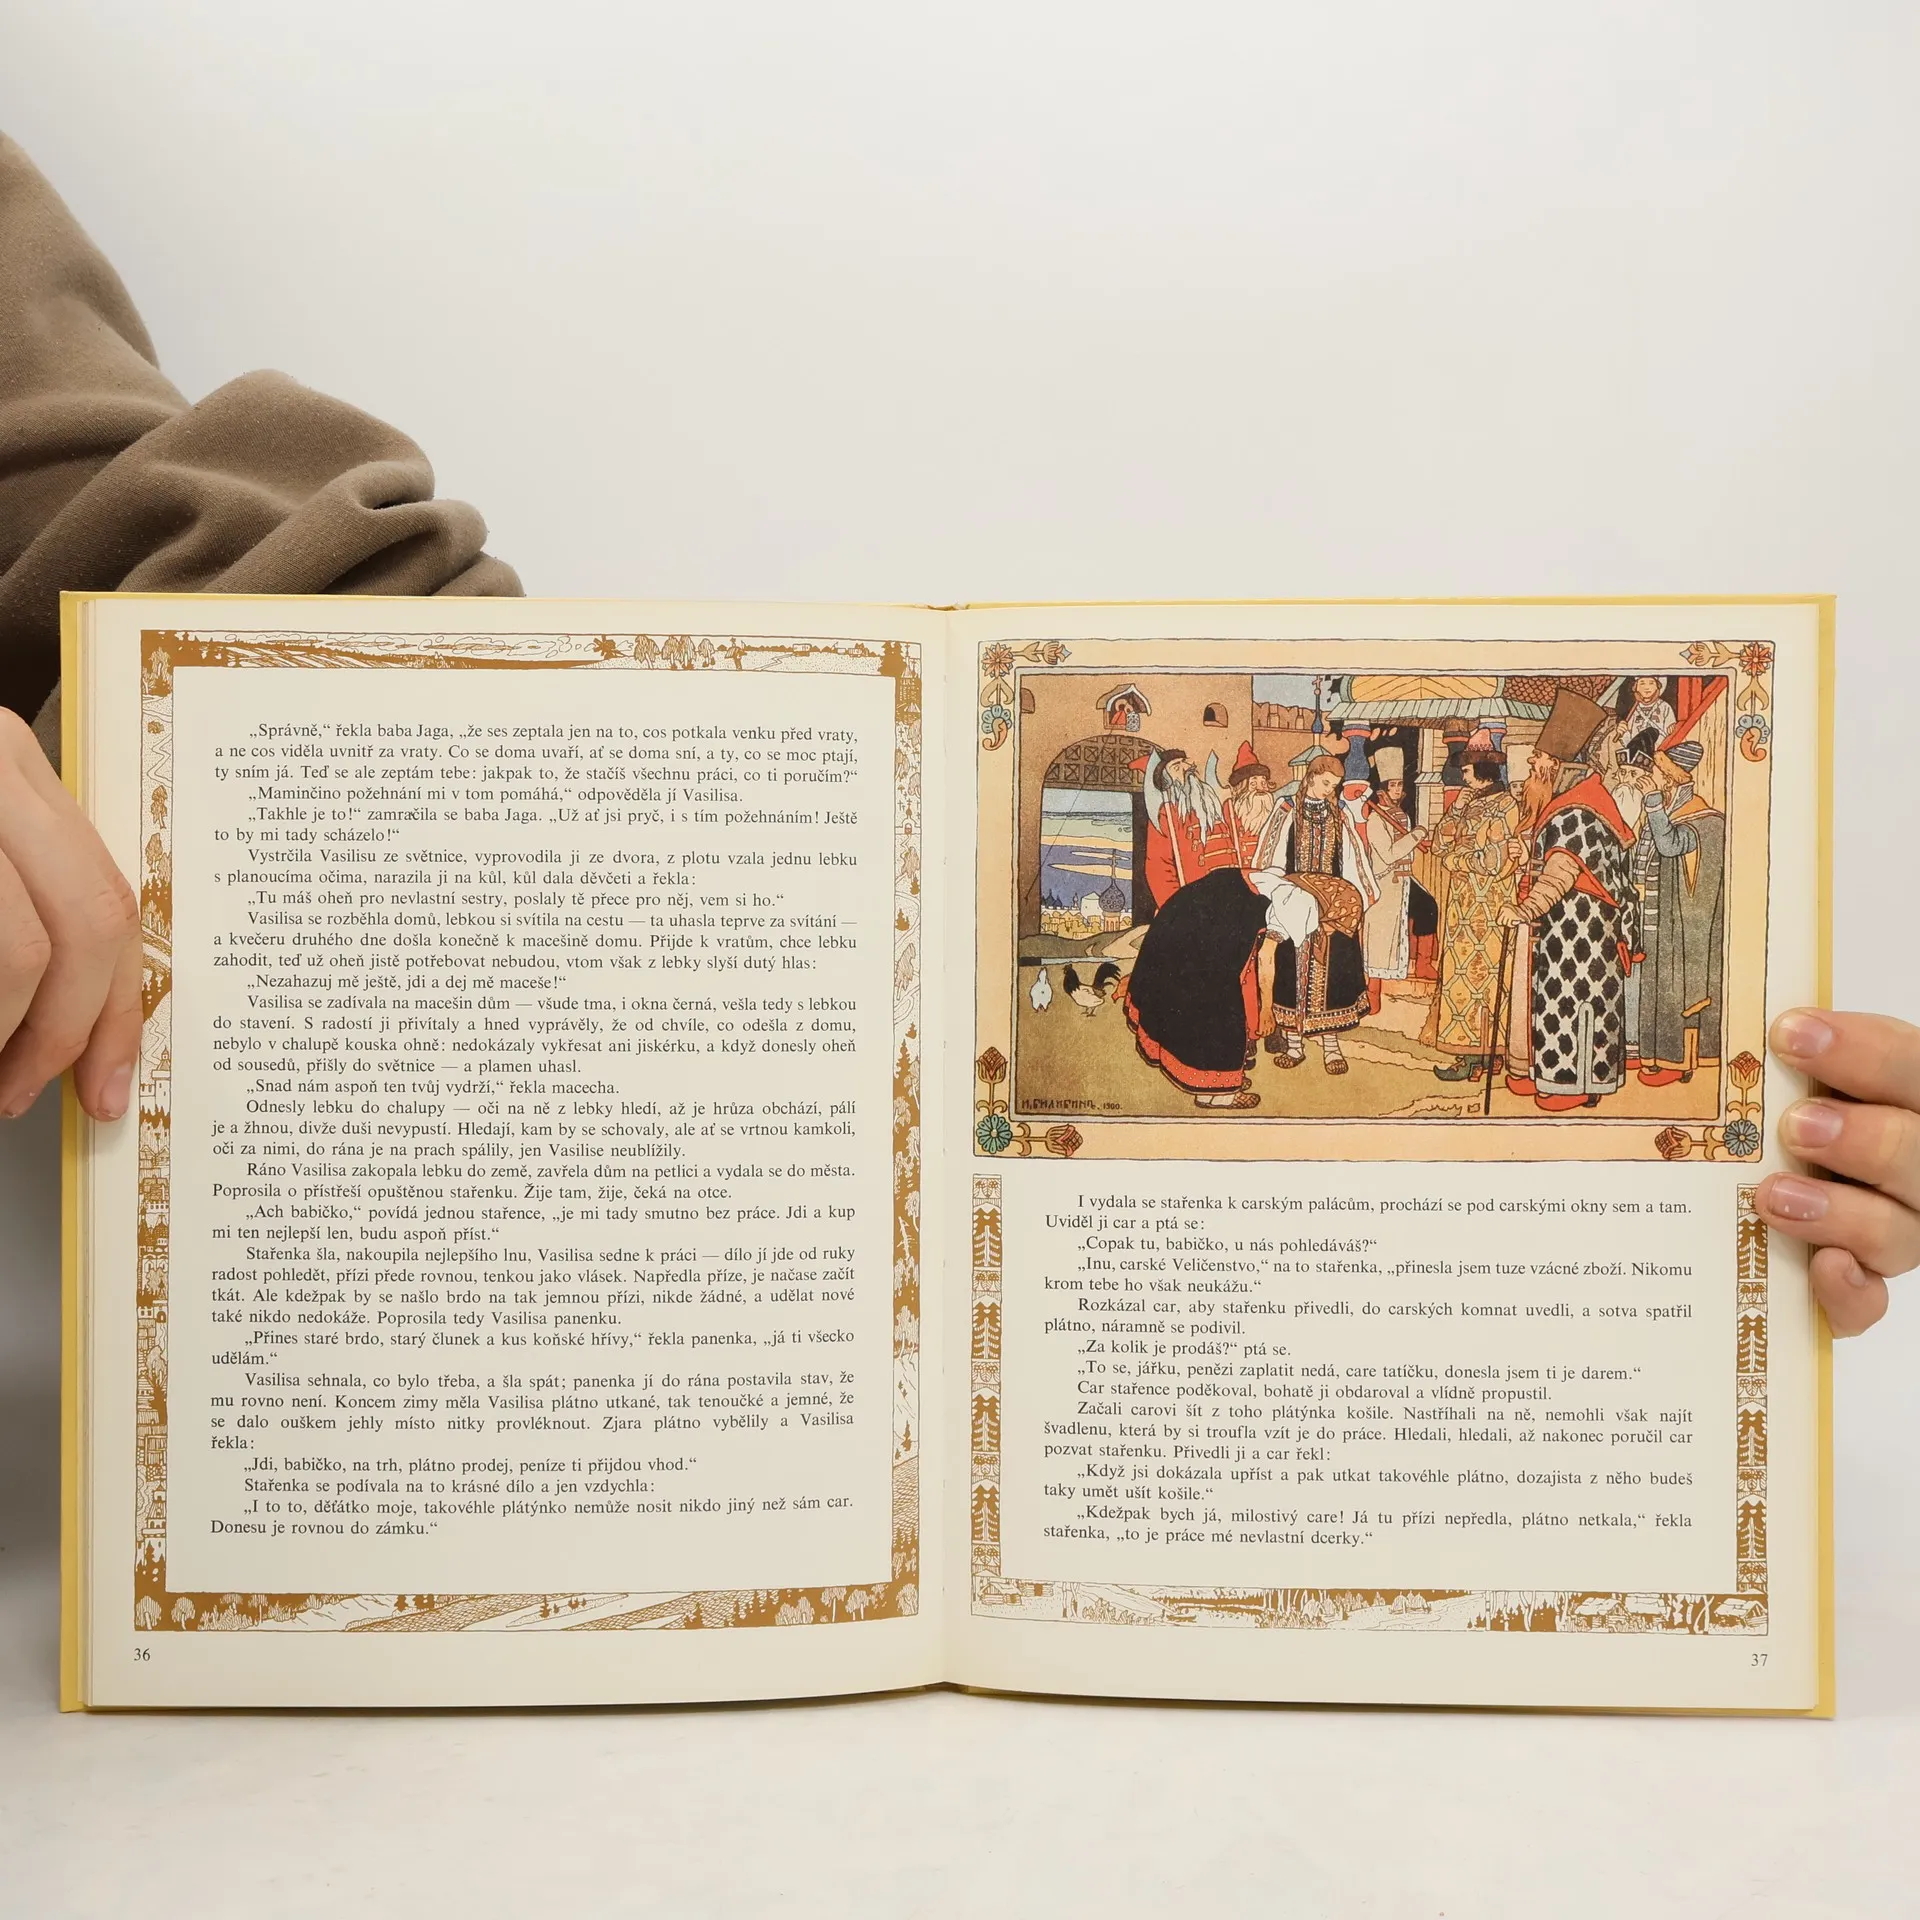 „Správně,“ řekla baba Jaga, „že ses zeptala jen na to, cos potkala venku před vraty,
a ne cos viděla uvnitř za vraty. Co se doma uvaří, ať se doma sní, a ty, co se moc ptají,
ty sním já. Teď se ale zeptám tebe: jakpak to, že stačíš všechnu práci, co ti poručím?“
„Maminčino požehnání mi v tom pomáhá,“ odpověděla jí Vasilisa.
„Takhle je to!“ zamračila se baba Jaga. „Už ať jsi pryč, i s tím požehnáním! Ještě
to by mi tady scházelo!“
Vystrčila Vasilisu ze světnice, vyprovodila ji ze dvora, z plotu vzala jednu lebku
s planoucíma očima, narazila ji na kůl, kůl dala děvčeti a řekla:
„Tu máš oheň pro nevlastní sestry, poslaly tě přece pro něj, vem si ho.“
Vasilisa se rozběhla domů, lebkou si svítila na cestu — ta uhasla teprve za svítání —
a kvečeru druhého dne došla konečně k macešině domu. Přijde k vratům, chce lebku
zahodit, teď už oheň jistě potřebovat nebudou, vtom však z lebky slyší dutý hlas:
„Nezahazuj mě ještě, jdi a dej mě maceše!“
Vasilisa se zadívala na macešin dům — všude tma, i okna černá, vešla tedy s lebkou
do stavení. S radostí ji přivítaly a hned vyprávěly, že od chvíle, co odešla z domu,
nebylo v chalupě kouska ohně: nedokázaly vykřesat ani jiskérku, a když donesly oheň
od sousedů, přišly do světnice — a plamen uhasl.
„Snad nám aspoň ten tvůj vydrží,“ řekla macecha.
Odnesly lebku do chalupy — oči na ně z lebky hledí, až je hrůza obchází, pálí
je a žhnou, divže duši nevypustí. Hledají, kam by se schovaly, ale ať se vrtnou kamkoli,
oči za nimi, do rána je na prach spálily, jen Vasilise neublížily.
Ráno Vasilisa zakopala lebku do země, zavřela dům na petlici a vydala se do města.
Poprosila o přístřeší opuštěnou stařenku. Žije tam, žije, čeká na otce.
„Ach babičko,“ povídá jednou stařence, „je mi tady smutno bez práce. Jdi a kup
mi ten nejlepší len, budu aspoň příst.“
Stařenka šla, nakoupila nejlepšího lnu, Vasilisa sedne k práci — dílo jí jde od ruky
radost pohledět, přízi přede rovnou, tenkou jako vlásek. Napředla příze, je načase začít
tkát. Ale kdežpak by se našlo brdo na tak jemnou přízi, nikde žádné, a udělat nové
také nikdo nedokáže. Poprosila tedy Vasilisa panenku.
„Přines staré brdo, starý člunek a kus koňské hřívy,“ řekla panenka, „já ti všecko
udělám.“
Vasilisa sehnala, co bylo třeba, a šla spát; panenka jí do rána postavila stav, že
mu rovno není. Koncem zimy měla Vasilisa plátno utkané, tak tenoučké a jemné, že
se dalo ouškem jehly místo nitky provléknout. Zjara plátno vybělily a Vasilisa
řekla:
„Jdi, babičko, na trh, plátno prodej, peníze ti přijdou vhod.“
Stařenka se podívala na to krásné dílo a jen vzdychla:
„I to to, děťátko moje, takovéhle plátýnko nemůže nosit nikdo jiný než sám car.
Donesu je rovnou do zámku.“
36
И. БИЛИБИНЪ. 1900.
I vydala se stařenka k carským palácům, prochází se pod carskými okny sem a tam.
Uviděl ji car a ptá se:
„Copak tu, babičko, u nás pohledáváš?“
„Inu, carské Veličenstvo,“ na to stařenka, „přinesla jsem tuze vzácné zboží. Nikomu
krom tebe ho však neukážu.“
Rozkázal car, aby stařenku přivedli, do carských komnat uvedli, a sotva spatřil
plátno, náramně se podivil.
„Za kolik je prodáš?“ ptá se.
„To se, jářku, penězi zaplatit nedá, care tatíčku, donesla jsem ti je darem.“
Car stařence poděkoval, bohatě ji obdaroval a vlídně propustil.
Začali carovi šít z toho plátýnka košile. Nastříhali na ně, nemohli však najít
švadlenu, která by si troufla vzít je do práce. Hledali, hledali, až nakonec poručil car
pozvat stařenku. Přivedli ji a car řekl:
„Když jsi dokázala upříst a pak utkat takovéhle plátno, dozajista z něho budeš
taky umět ušít košile.“
„Kdežpak bych já, milostivý care! Já tu přízi nepředla, plátno netkala,“ řekla
stařenka, „to je práce mé nevlastní dcerky.“
37